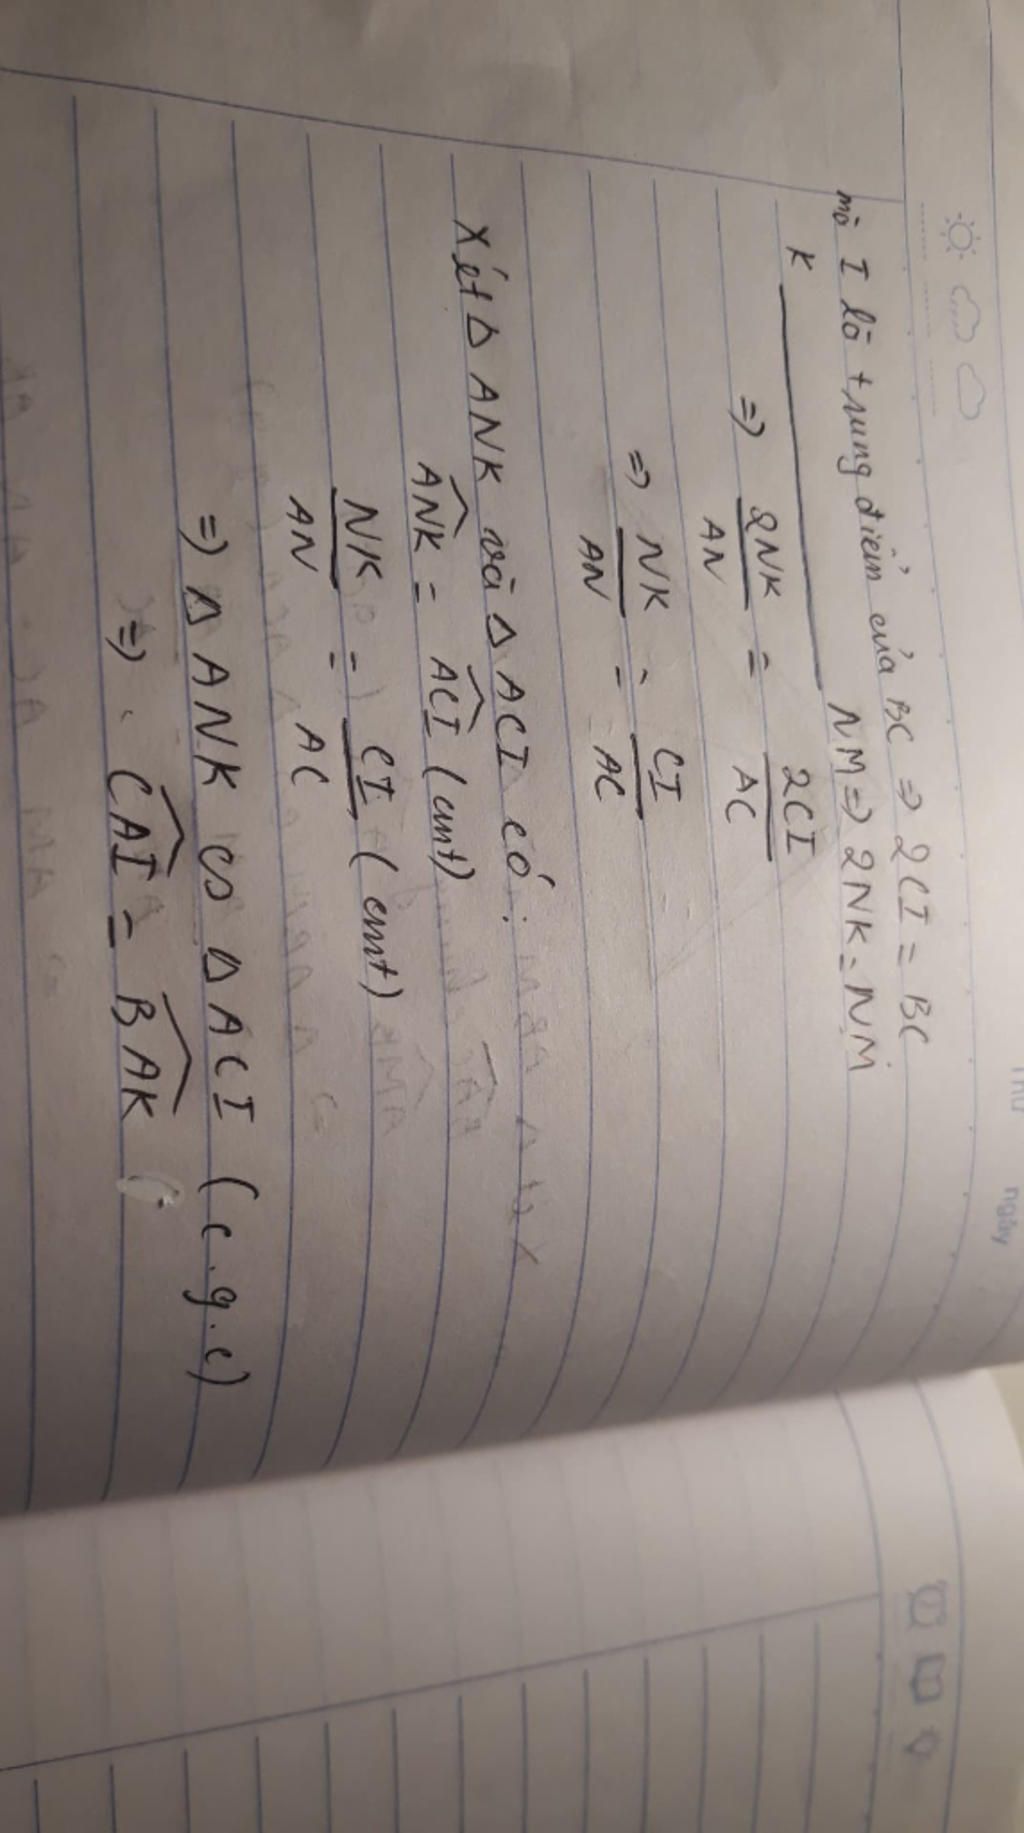 Thứ
ngày
mà I là trung điểm của BC => 2CI = BC
K NM => 2NK = NM
=> 2NK/AN = 2CI/AC
=> NK/AN = CI/AC
Xét Δ ANK và Δ ACI có:
ANK = ACI (cmt)
NK/AN = CI/AC (cmt)
=> Δ ANK ∽ Δ ACI (c.g.c)
=> CAI = BAK